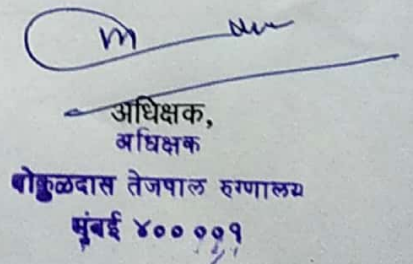 अधिक्षक,
अधिक्षक
गोकुळदास तेजपाल रुग्णालय
मुंबई ४०० ००१